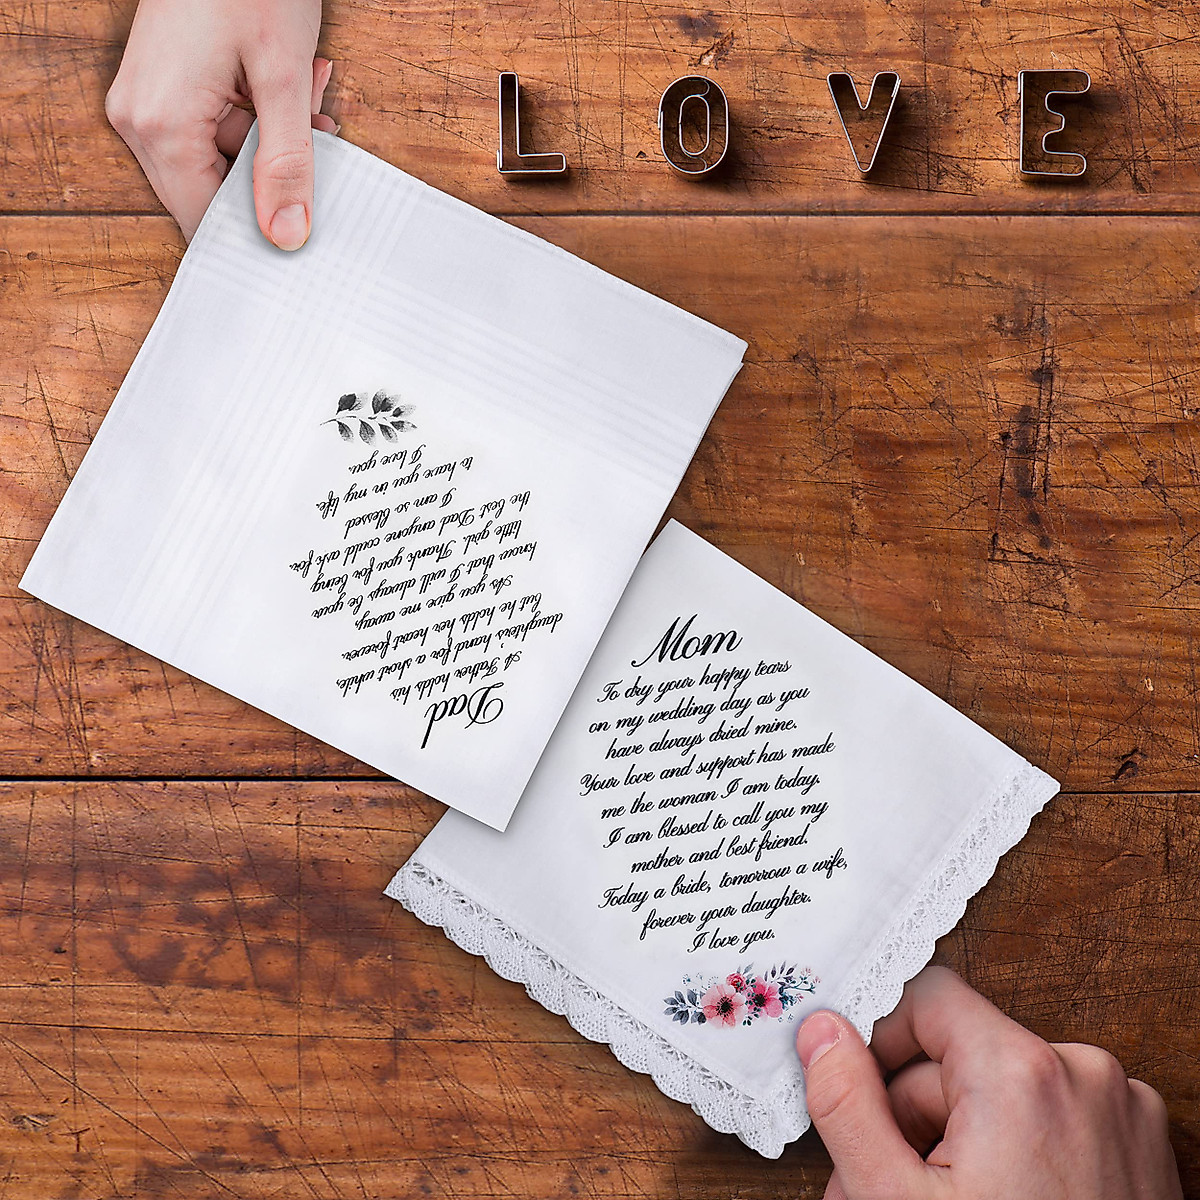 LOVE
Dad
A Father holds his
daughters hand for a short while,
but he holds her heart forever.
As you give me away,
know that I will always be your
little girl. Thank you for being
the best Dad anyone could ask for.
I am so blessed
to have you in my life.
I love you.
Mom
To dry your happy tears
on my wedding day as you
have always dried mine.
Your love and support has made
me the woman I am today.
I am blessed to call you my
mother and best friend.
Today a bride, tomorrow a wife,
forever your daughter.
I love you.